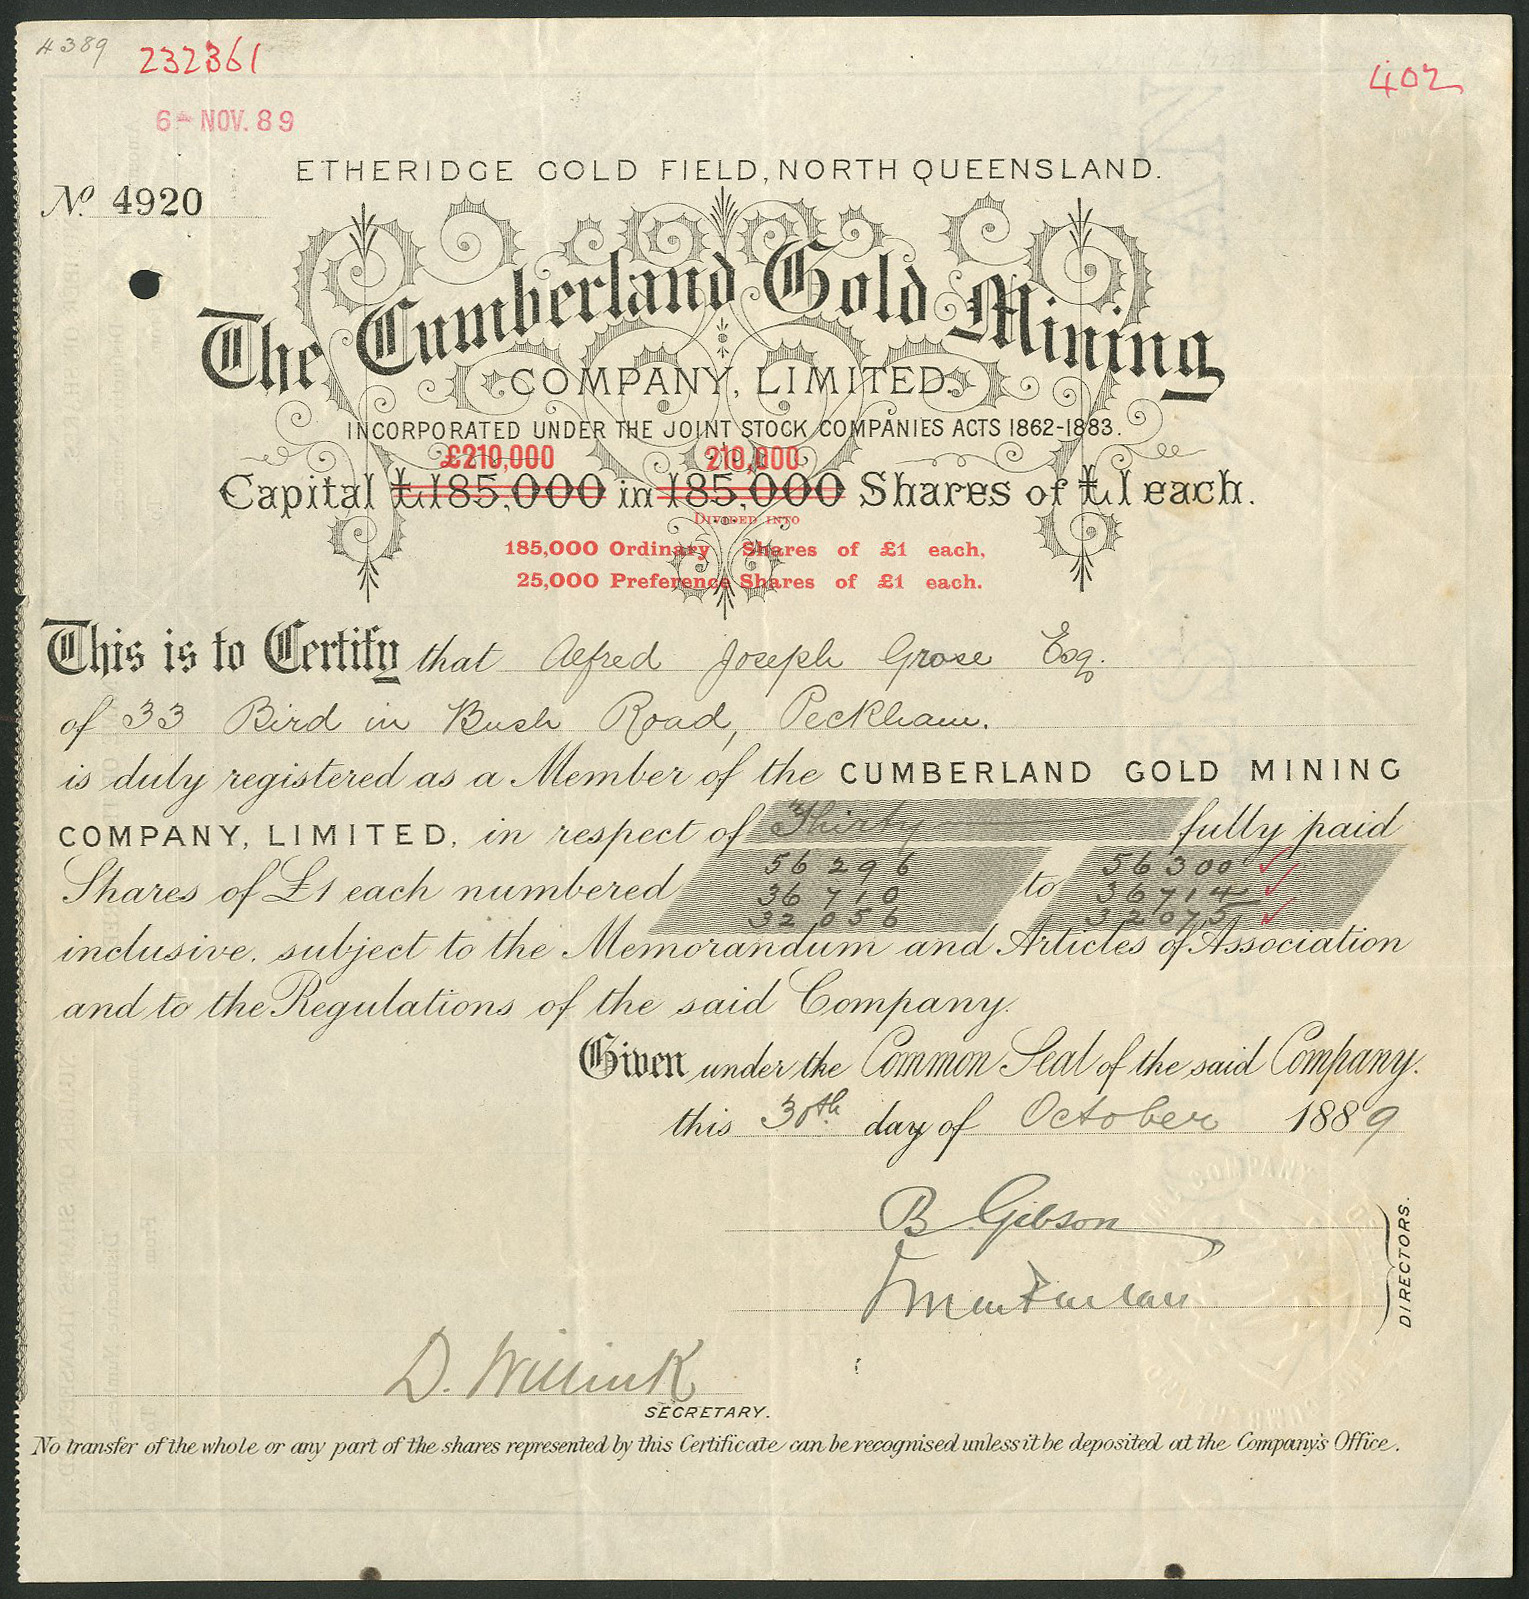 4389
232361
402
6- NOV. 89
ETHERIDGE GOLD FIELD, NORTH QUEENSLAND.
No. 4920
The Cumberland Gold Mining
COMPANY, LIMITED.
INCORPORATED UNDER THE JOINT STOCK COMPANIES ACTS 1862-1883.
£210,000 210,000
Capital £185,000 in 185,000 Shares of £1 each.
DIVIDED INTO
185,000 Ordinary Shares of £1 each,
25,000 Preference Shares of £1 each.
This is to Certify that Alfred Joseph Grose Esq.
of 33 Bird in Bush Road, Peckham.
is duly registered as a Member of the CUMBERLAND GOLD MINING
COMPANY, LIMITED, in respect of Thirty fully paid
56296 56300
Shares of £1 each numbered 36710 to 36714
32056 32075
inclusive, subject to the Memorandum and Articles of Association
and to the Regulations of the said Company.
Given under the Common Seal of the said Company.
this 30th day of October 1889
B Gibson
DIRECTORS.
D. Willink
SECRETARY.
No transfer of the whole or any part of the shares represented by this Certificate can be recognised unless it be deposited at the Company's Office.